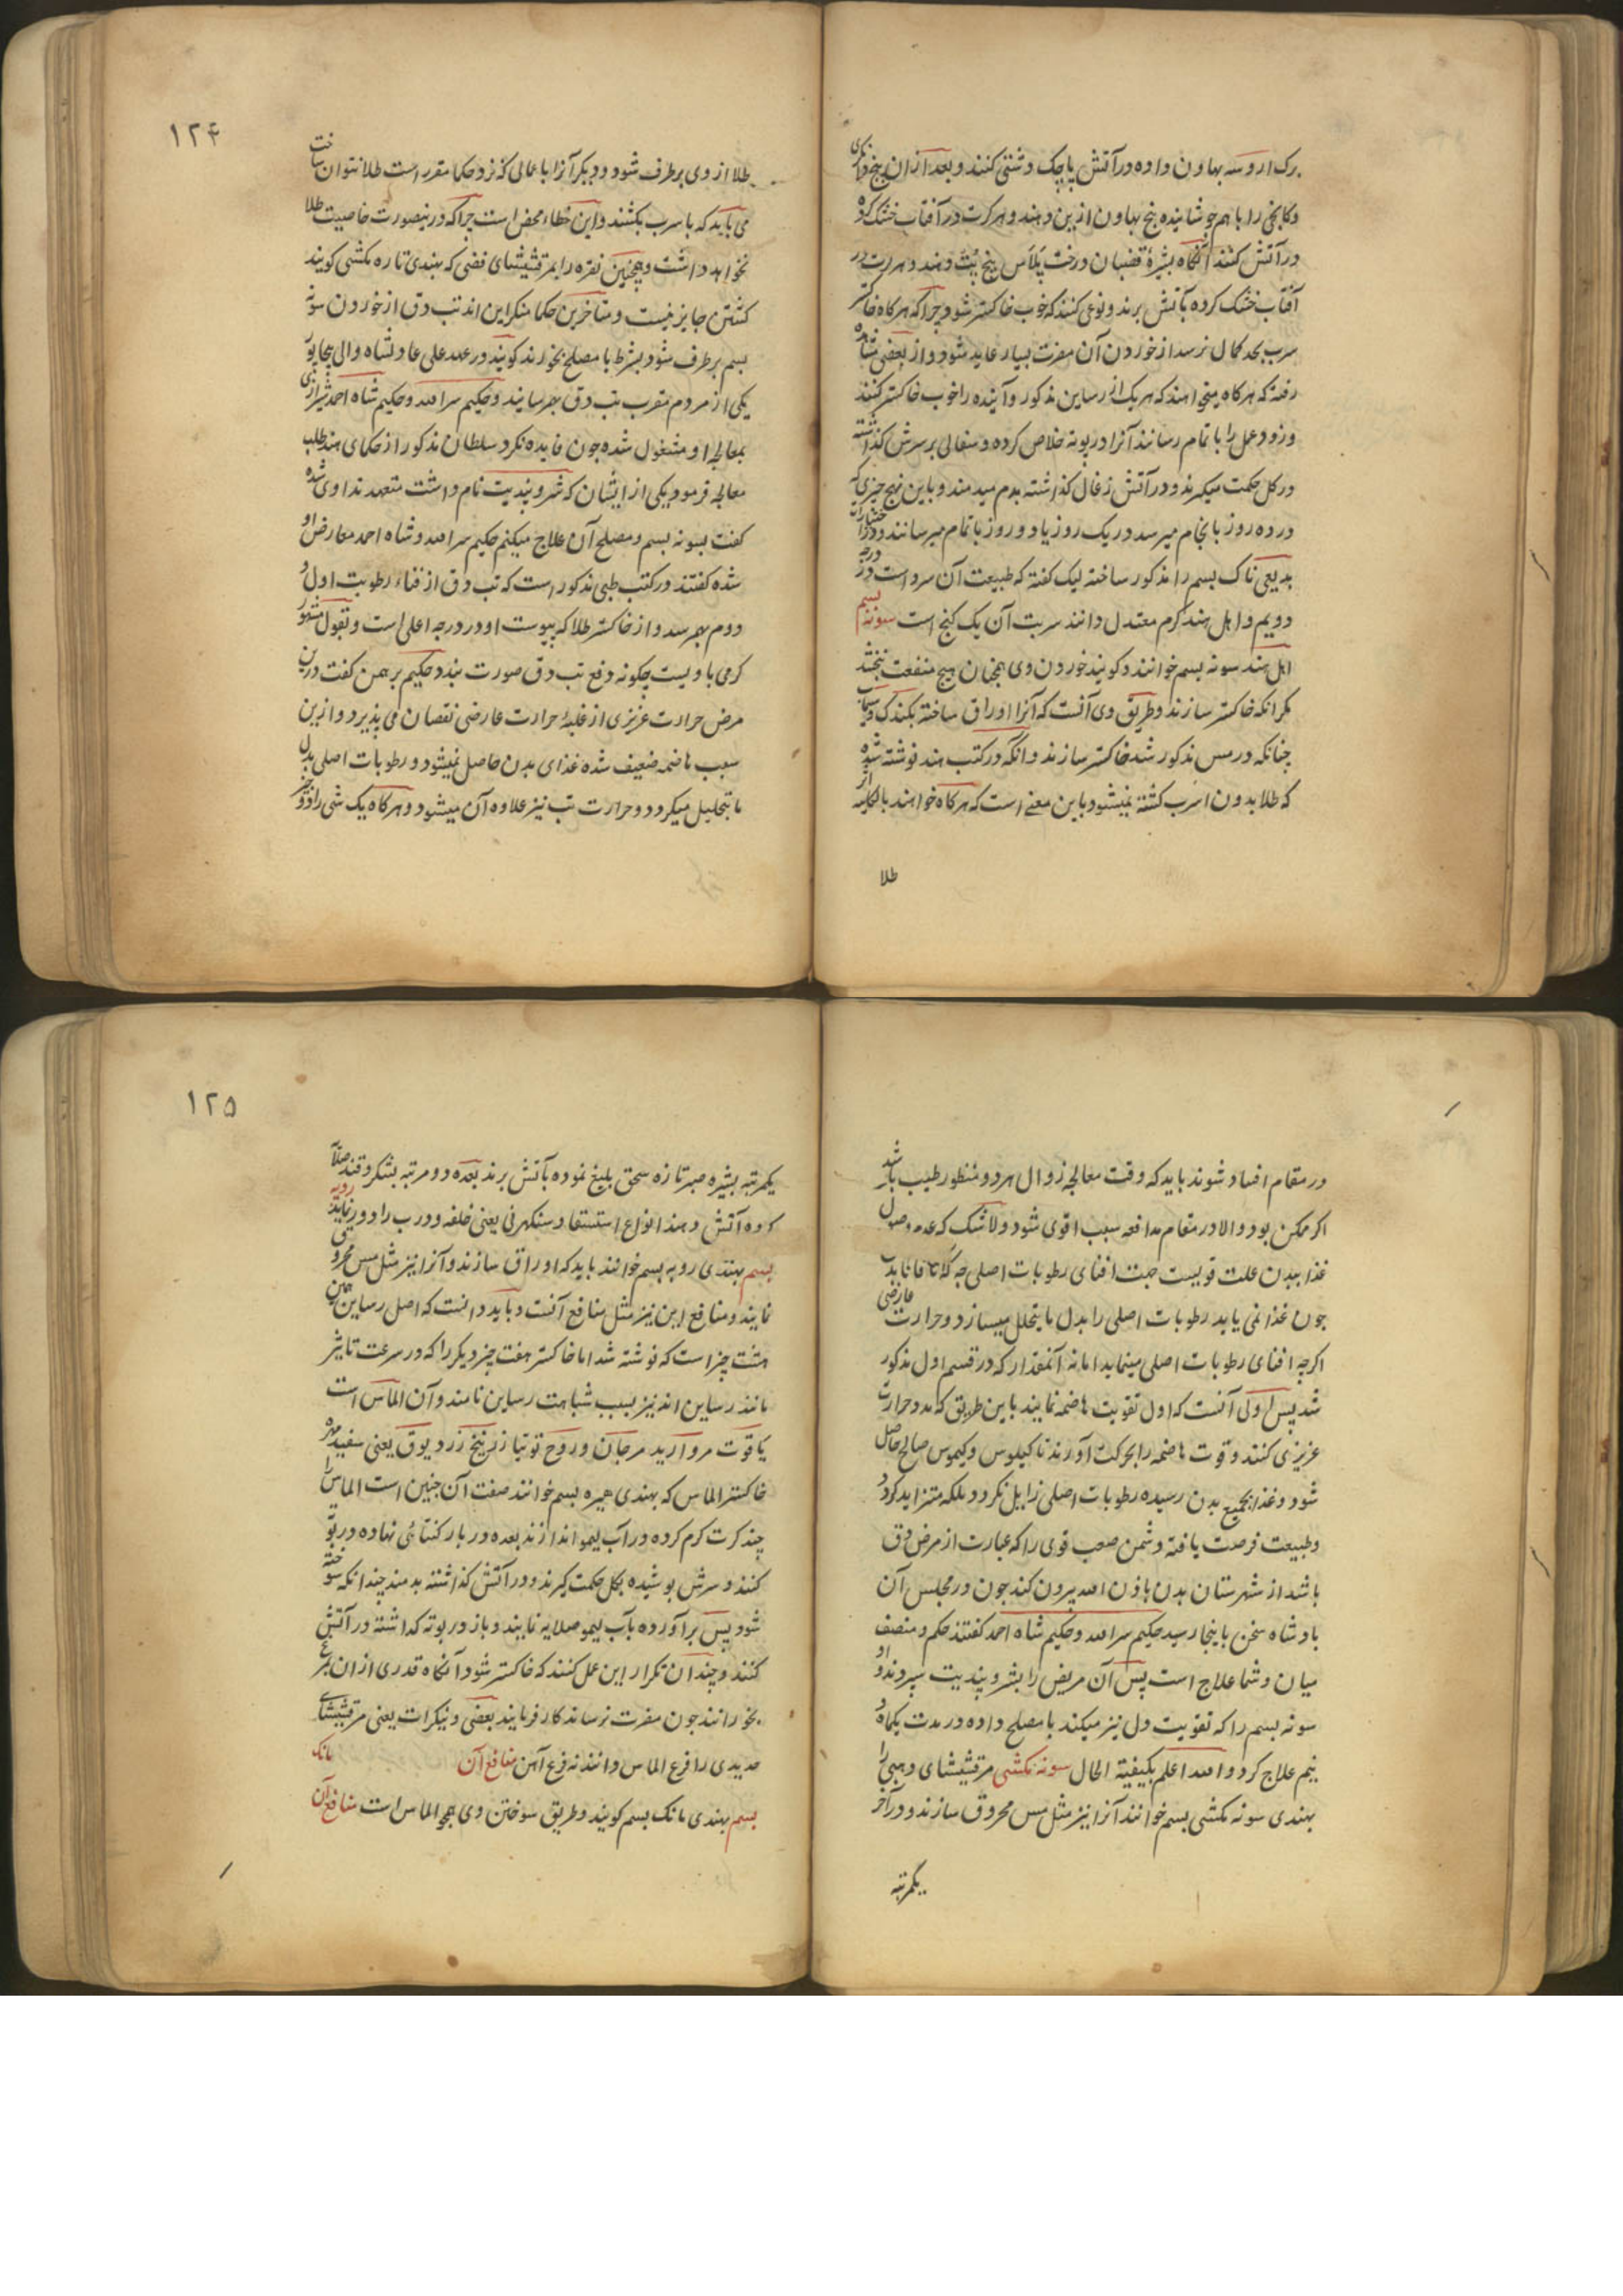 برک اروسه بهاون داده در آتش پاچک دشتی کنند و بعد از ان بیخ
وکابخی را باهم جوشانیده پنج بهاون ازین دهند و هر کرت در آفتاب خشک کرده
در آتش کنند آنگاه بشیرهٔ قضبان درخت پلاس پنج پت دهند و هر کرت در
آفتاب خشک کرده بآتش برند و نوعی کنند که خوب خاکستر شود چرا که هرکاه خاکستر
سرب بحد کمال نرسد از خوردن آن مضرت بسیار عاید شود و از بعضی مشاهده
رفته که هرکاه میخواهند که هر یک از رساین مذکور و آینده را خوب خاکستر کنند
و زود عمل را باتمام رسانند آنرا در بوته خلاص کرده و سفالی بر سرش کذاشته
در کل حکمت میکیرند و در آتش زغال کذاشته بدم میدمند و باین نهج چیزی که
در ده روز بانجام میرسد در یک روز یا دو روز باتمام میرسانند و در اختیارات
بدیعی ناک بسم را مذکور ساخته لیک کفته که طبیعت آن سرد است در درجه
دویم و اهل هند کرم معتدل دانند شربت آن یک کنج است سونه بسم
اهل هند سونه بسم خوانند و کویند خوردن وی همچنان هیچ منفعت نبخشد
مکر انکه خاکستر سازند و طریق وی آنست که آنرا اوراق ساخته بکندک و سیماب
چنانکه در مس مذکور شد خاکستر سازند و انکه در کتب هند نوشته شده
که طلا بدون اسرب کشته نمیشود باین معنی است که هرکاه خواهند بالکلیه از
طلا
۱۲۴
طلا از وی برطرف شود و دیکر آنرا باعمالی که نزد حکما مقرر است طلا نتوان ساخت
می باید که با سرب بکشند و این خطاء محض است چرا که درینصورت خاصیت طلا
نخواهد داشت و همچنین نقره را بمرقشیشای فضی که بهندی تاره مکشی کویند
کشتن جایز نیست و متاخرین حکما منکر این اند تب دق از خوردن سونه
بسم برطرف شود بشرط با مصلح بخورند کویند در عهد علی عادلشاه والی بیجاپور
یکی از مردم مقرب تب دق بهم رسانید و حکیم سرامد و حکیم شاه احمد شیرازی
بمعالجه او مشغول شده چون فایده نکرد سلطان مذکور از حکمای هند طلب
معالجه فرمود یکی از ایشان که شرو پندیت نام داشت متعهد تداوی شده
کفت بسونه بسم و مصلح آن علاج میکنم حکیم سرامد و شاه احمد معارض او
شده کفتند در کتب طبی مذکور است که تب دق از فناء رطوبت اول و
دوم بهم رسد و از خاکستر طلا که یبوست او در درجه اعلی است و بقول مشهور
کرمی با ویست چکونه دفع تب دق صورت بندد حکیم برهمن کفت درین
مرض حرارت غریزی از غلبهٔ حرارت عارضی نقصان می پذیرد و ازین
سبب هاضمه ضعیف شده غذای بدن حاصل نمیشود و رطوبات اصلی بدل
ما یتحلیل میکردد و حرارت تب نیز علاوه آن میشود و هرکاه یک شی را دو چیز
در مقام افساد شوند باید که وقت معالجه زوال هر دو منظور طبیب باشد
اکر ممکن بود و الا در مقام مدافعه سبب اقوی شود و لا شک که عدم وصول
غذا ببدن علت قویست جهت افنای رطوبات اصلی چه که آنا فانا بدن
چون غذا نمی یابد رطوبات اصلی را بدل ما یتحلل میسازد و حرارت عارضی
اکرچه افنای رطوبات اصلی مینماید اما نه آنمقدار که در قسم اول مذکور
شد پس اولی آنست که اول تقویت هاضمه نمایند باین طریق که مدد حرارت
غریزی کنند و قوت هاضمه را بحرکت آورند تا کیلوس و کیموس صالح حاصل
شود و غذا بجمیع بدن رسیده رطوبات اصلی زایل نکردد بلکه متزاید کردد
و طبیعت فرصت یافته دشمن صعب قوی را که عبارت از مرض دق
باشد از شهرستان بدن باذن الله بیرون کند چون در مجلس آن
بادشاه سخن باینجا رسید حکیم سرامد و حکیم شاه احمد کفتند حکم و منصف
میان و شما علاج است پس آن مریض را بشرو پندیت سپردند و او
سونه بسم را که تقویت دل نیز میکند با مصلح داده در مدت یکماه و
نیم علاج کرد و الله اعلم بکیفیة الحال سونه مکشی مرقشیشای ذهبی را
بهندی سونه مکشی بسم خوانند آنرا نیز مثل مس محروق سازند و در آخر
یکمرتبه
۱۲۵
یکمرتبه بشیره صبر تازه سحق بلیغ نموده بآتش برند بعده دو مرتبه بشکر و قند صلایه
کرده آتش دهند انواع استسقا و سنکرنی یعنی خلفه و درب را دور نماید روپه
بسم بهندی روپه بسم خوانند باید که اوراق سازند و آنرا نیز مثل مس محروق
نمایند و منافع این نیز مثل منافع آنست و باید دانست که اصل رساین همین
هشت چیز است که نوشته شد اما خاکستر هفت چیز دیکر را که در سرعت تاثیر
مانند رساین اند نیز بسبب شباهت رساین نامند و آن الماس است
یاقوت مروارید مرجان و روح توتیا زرنیخ زرد بوق یعنی سفید مهره
خاکستر الماس که بهندی هیره بسم خوانند صفت آن چنین است الماس را
چند کرت کرم کرده در آب لیمو اندازند بعده در بار کنتائی نهاده در بوته
کنند و سرش بوشیده بکل حکمت کیرند و در آتش کذاشته بدمند چندانکه سوخته
شود پس برآورده بآب لیمو صلایه نمایند و باز در بوته کذاشته در آتش
کنند و چندان تکرار این عمل کنند که خاکستر شود آنکاه قدری از ان بمرغ
بخورانند چون مضرت نرساند کار فرمایند بعضی ونیکرات یعنی مرقشیشای
حدیدی را فرع الماس دانند نه فرع آهن منافع آن مانک
بسم بهندی مانک بسم کویند و طریق سوختن وی همچو الماس است منافع آن